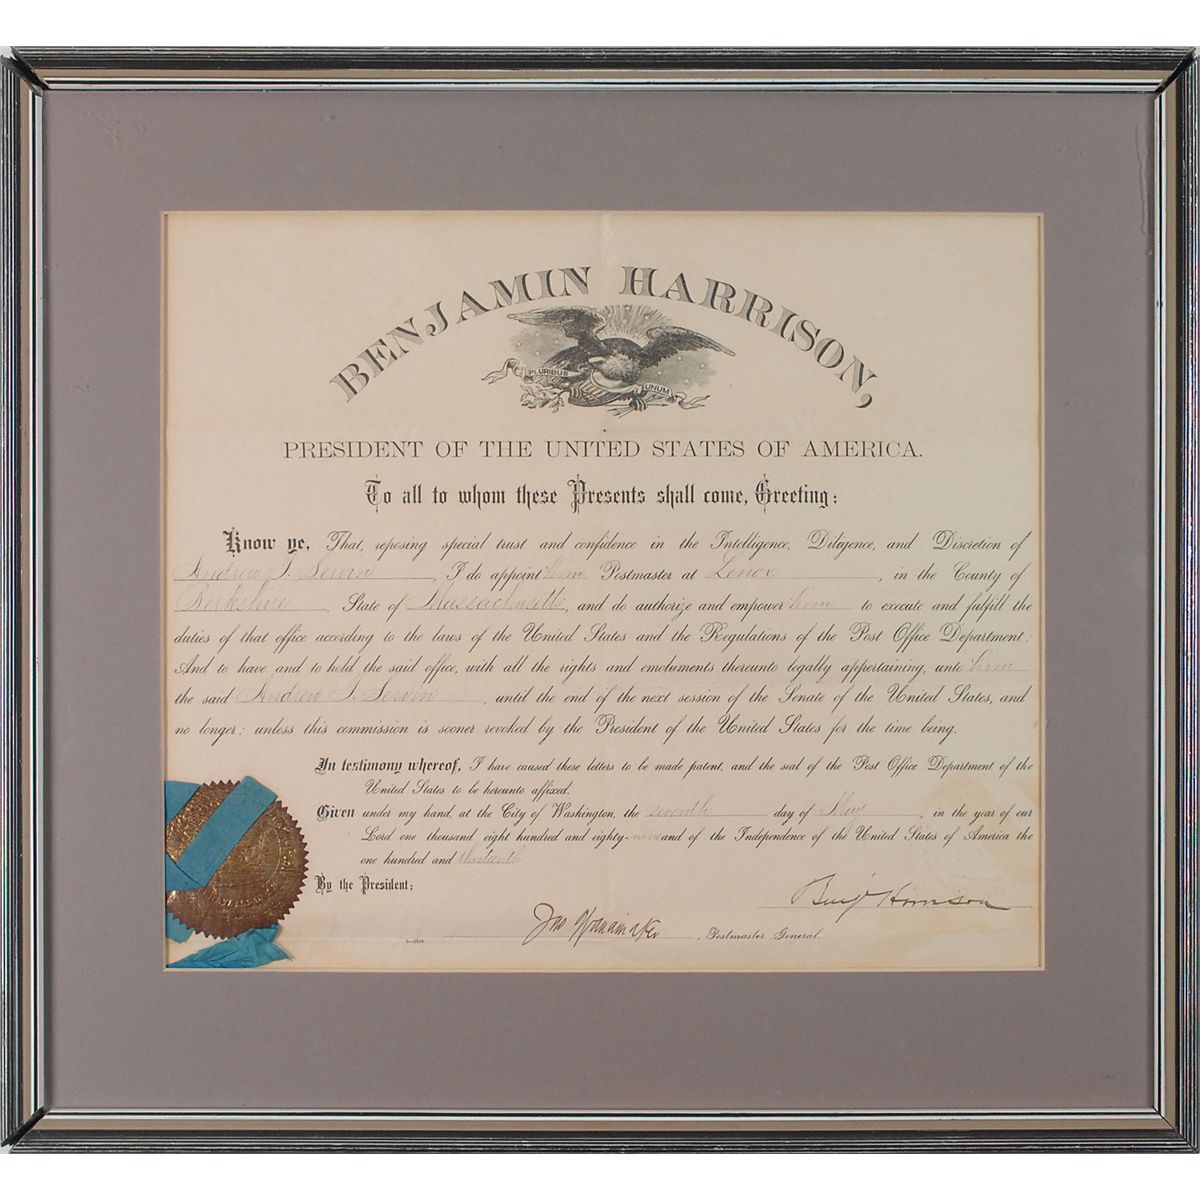 BENJAMIN HARRISON,
PLURIBUS
UNUM
PRESIDENT OF THE UNITED STATES OF AMERICA.
To all to whom these Presents shall come, Greeting:
Know ye, That, reposing special trust and confidence in the Intelligence, Diligence, and Discretion of
Andrew J. Servin, I do appoint him Postmaster at Lenox, in the County of
Berkshire, State of Massachusetts, and do authorize and empower him to execute and fulfill the
duties of that office according to the laws of the United States and the Regulations of the Post Office Department:
And to have and to hold the said office, with all the rights and emoluments thereunto legally appertaining, unto him
the said Andrew J. Servin, until the end of the next session of the Senate of the United States, and
no longer; unless this commission is sooner revoked by the President of the United States for the time being.
In testimony whereof, I have caused these letters to be made patent, and the seal of the Post Office Department of the
United States to be hereunto affixed.
Given under my hand, at the City of Washington, the seventh day of May, in the year of our
Lord one thousand eight hundred and eighty-nine and of the Independence of the United States of America the
one hundred and thirteenth
By the President:
Benj Harrison
Jno Wanamaker, Postmaster General.